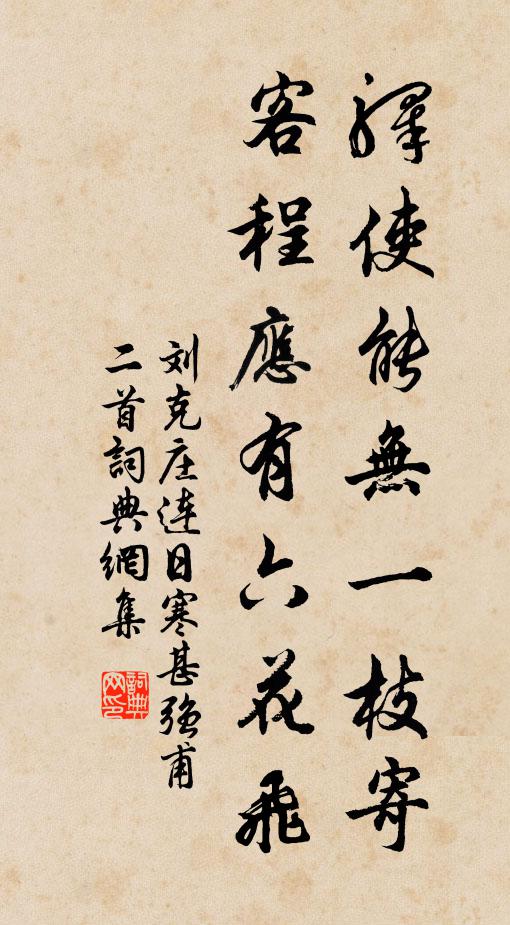 驛使能無一枝寄
客程應有六花飛
刘克庄連日寒甚強甫
二首詞典網集
詞典网印